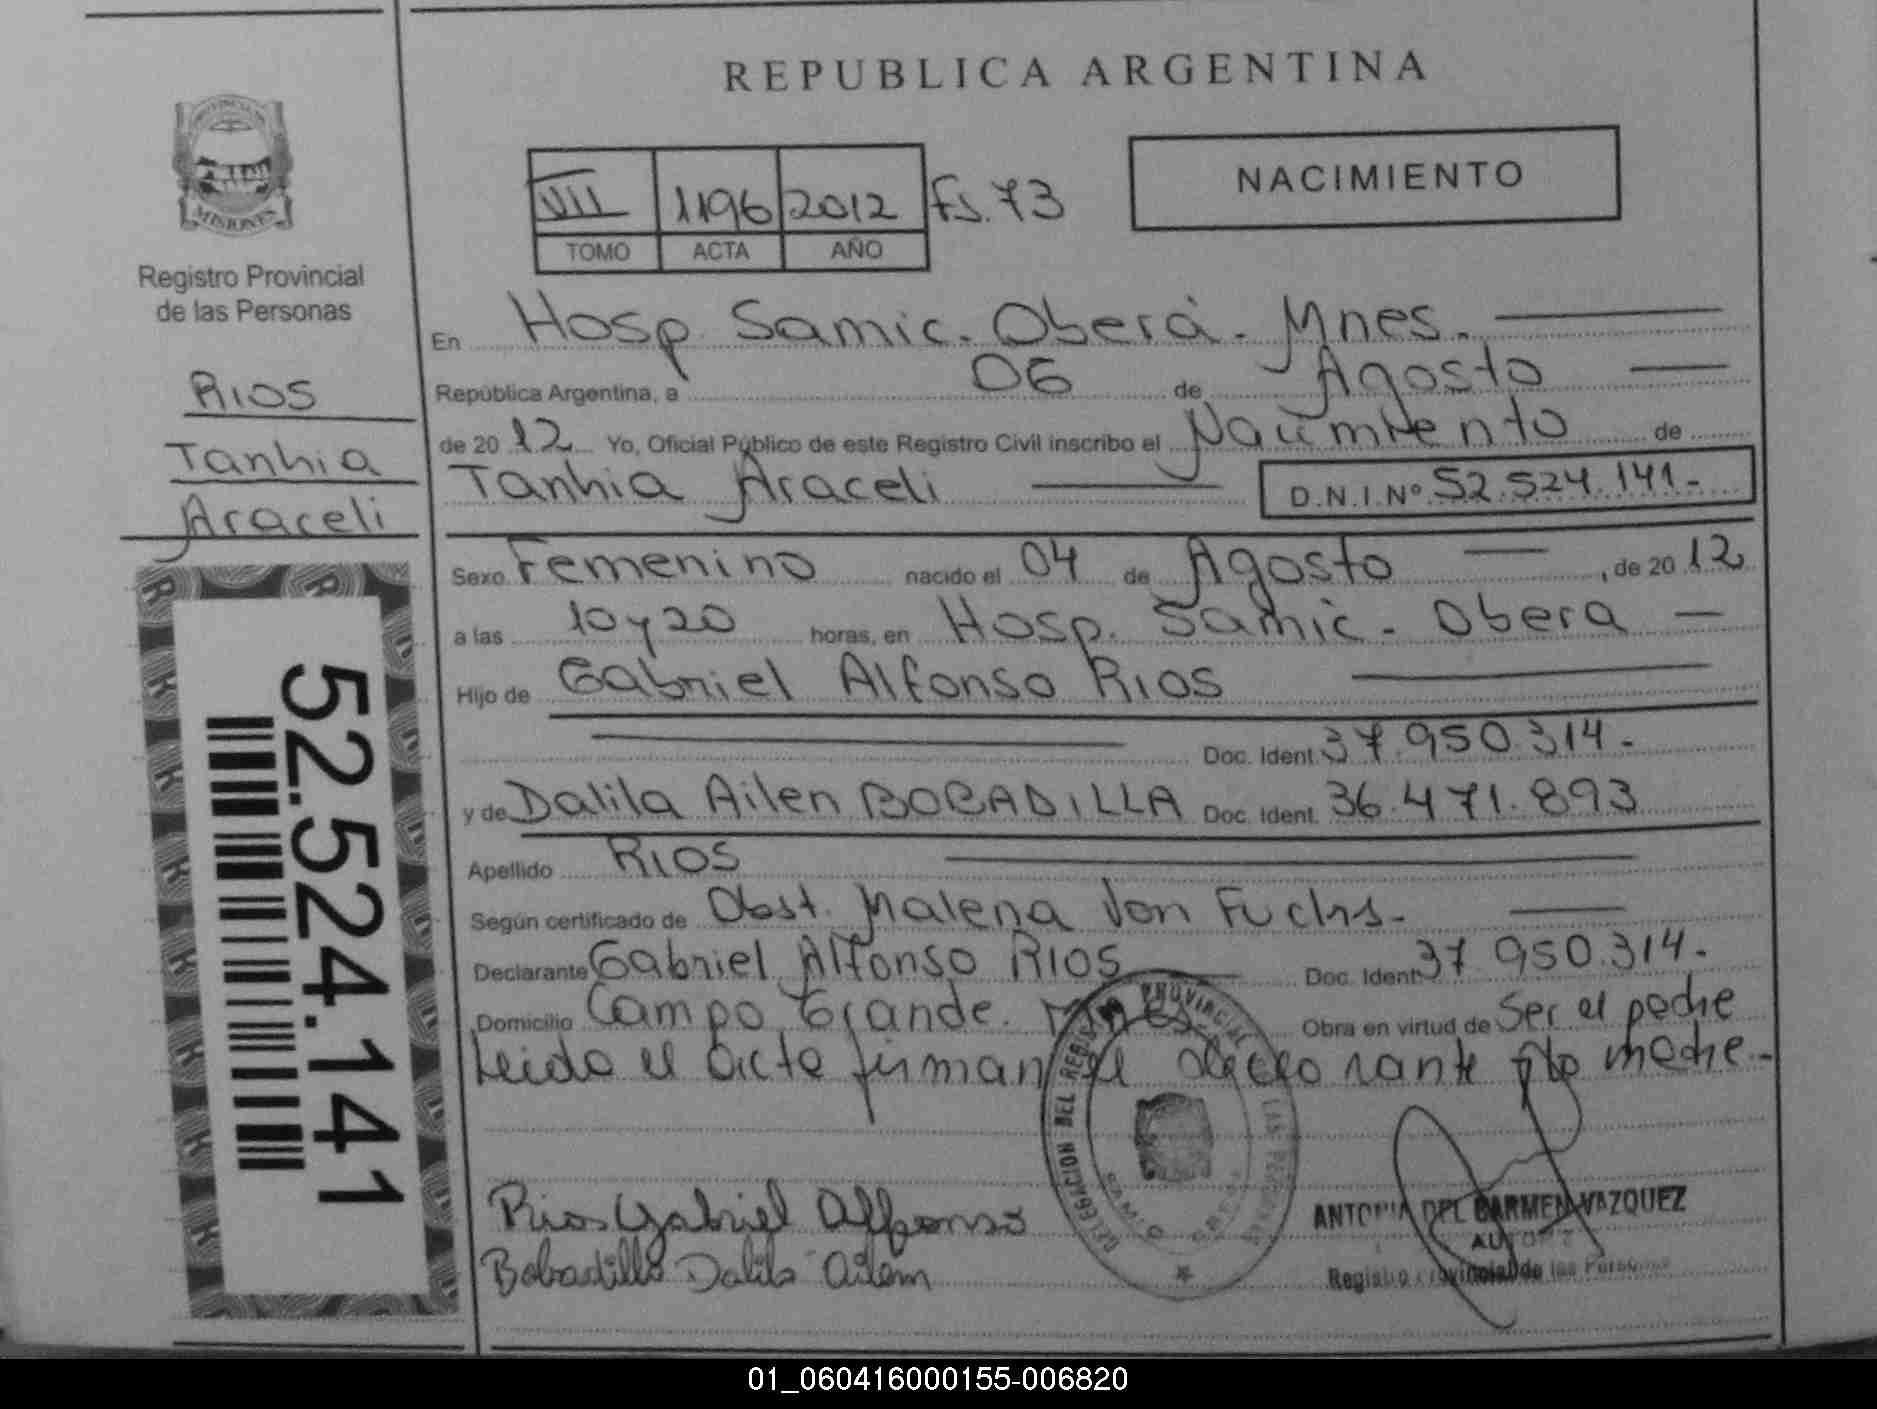 REPUBLICA ARGENTINA
NACIMIENTO
VII 1196 2012 Fs. 73
TOMO ACTA AÑO
MISIONES
Registro Provincial
de las Personas
RIOS
Tanhia
Araceli
52.524.141
En Hosp. Samic. Oberá. Mnes.
República Argentina, a 06 de Agosto
de 2012 Yo, Oficial Público de este Registro Civil inscribo el Nacimiento de
Tanhia Araceli D.N.I.Nº 52.524.141.-
Sexo Femenino nacido el 04 de Agosto, de 2012
a las 10 y 20 horas, en Hosp. Samic. Obera
Hijo de Gabriel Alfonso Rios
Doc. Ident. 37.950.314.-
y de Dalila Ailen BOBADILLA Doc. Ident. 36.471.893
Apellido RIOS
Según certificado de Obst. Malena Von Fuchs.
Declarante Gabriel Alfonso RIOS Doc. Ident. 37.950.314.-
Domicilio Campo Grande. Mnes. Obra en virtud de Ser el padre
Leido el acta firman el declarante y la madre.-
DELEGACION DEL REGISTRO PROVINCIAL DE LAS PERSONAS
SAMIC OBERA
Rios Gabriel Alfonso
Bobadilla Dalila Ailen
ANTONIA DEL CARMEN VAZQUEZ
Registro Provincial de las Personas
01_060416000155-006820